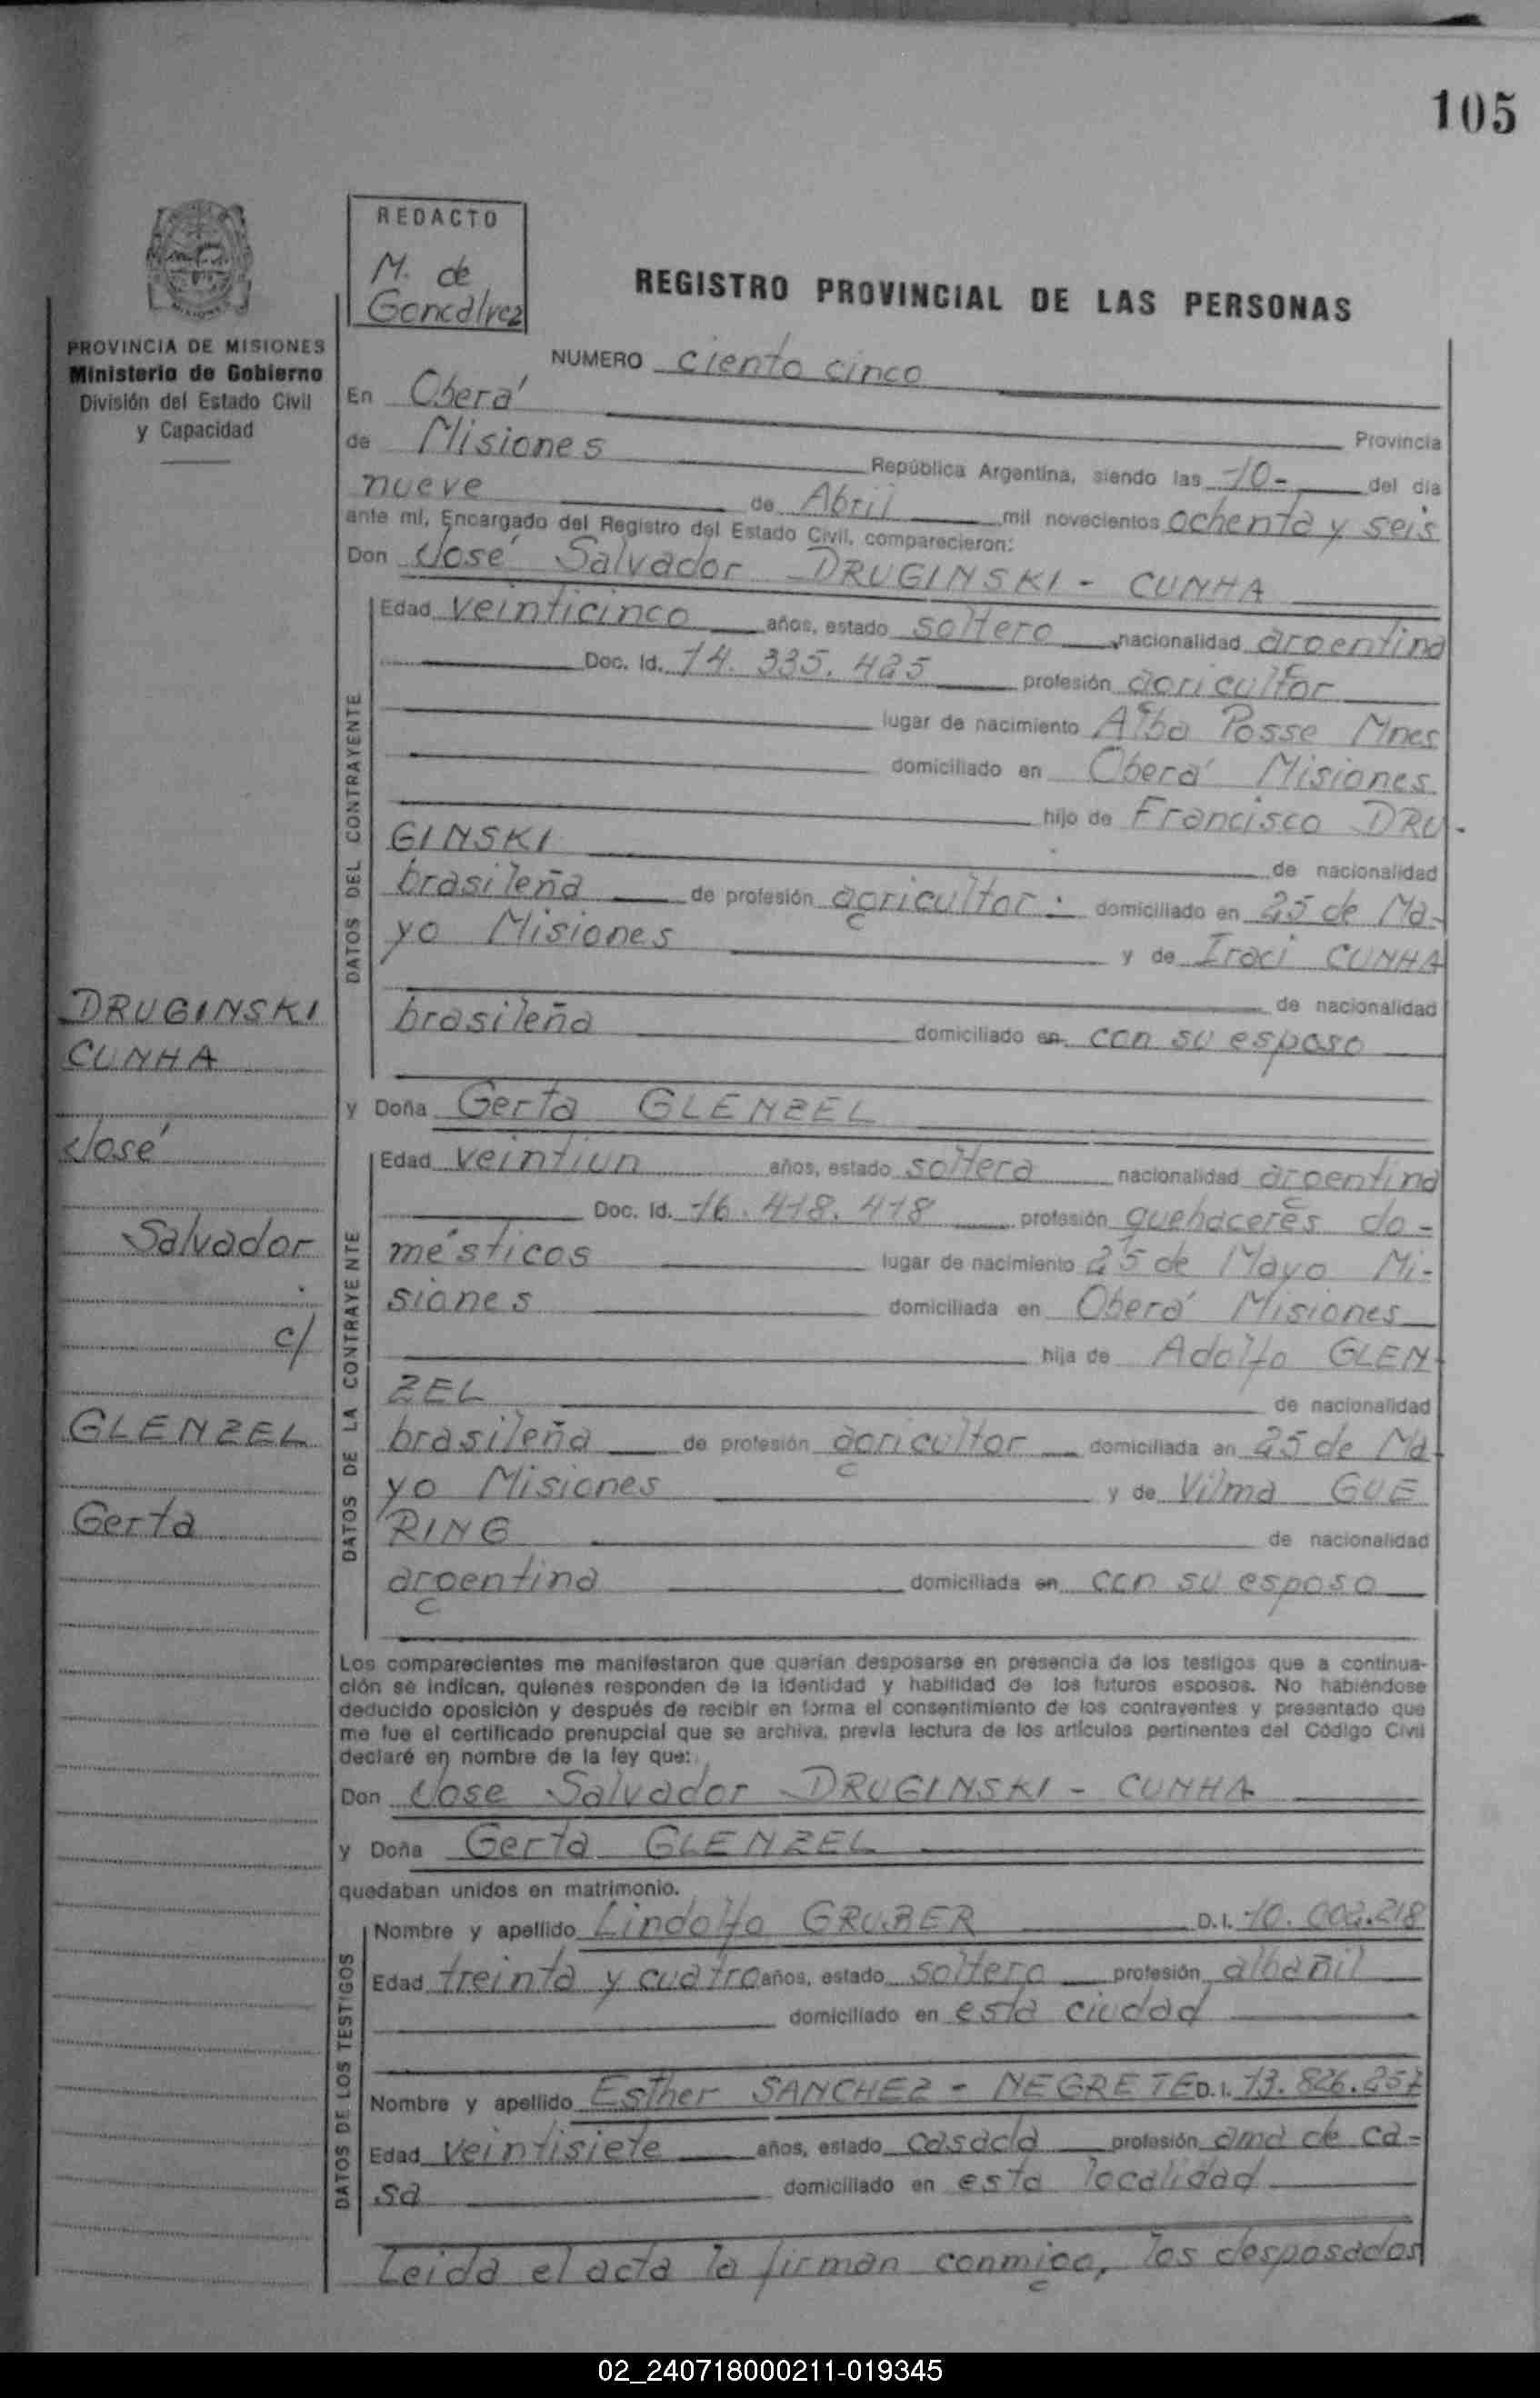 105
REDACTO
M. de
Goncalvez
REGISTRO PROVINCIAL DE LAS PERSONAS
PROVINCIA DE MISIONES
Ministerio de Gobierno
División del Estado Civil
y Capacidad
NUMERO ciento cinco
En Oberá Provincia
de Misiones República Argentina, siendo las 10- del día
nueve de Abril mil novecientos ochenta y seis
ante mí, Encargado del Registro del Estado Civil, comparecieron:
Don José Salvador DRUGINSKI - CUNHA
DATOS DEL CONTRAYENTE
Edad veinticinco años, estado soltero nacionalidad argentina
Doc. Id. 14.335.425 profesión agricultor
lugar de nacimiento Alba Posse Mnes
domiciliado en Oberá Misiones
hijo de Francisco DRU-
GINSKI de nacionalidad
brasileña de profesión agricultor. domiciliado en 25 de Ma-
yo Misiones y de Iraci CUNHA
de nacionalidad
brasileña domiciliado en con su esposo
DRUGINSKI
CUNHA
José
Salvador
c/
GLENZEL
Gerta
y Doña Gerta GLENZEL
DATOS DE LA CONTRAYENTE
Edad veintiun años, estado soltera nacionalidad argentina
Doc. Id. 16.418.418 profesión quehaceres do-
mésticos lugar de nacimiento 25 de Mayo Mi-
siones domiciliada en Oberá Misiones
hija de Adolfo GLEN
ZEL de nacionalidad
brasileña de profesión agricultor domiciliada en 25 de Ma
yo Misiones y de Vilma GUE
RING de nacionalidad
argentina domiciliada en con su esposo
Los comparecientes me manifestaron que querían desposarse en presencia de los testigos que a continua-
ción se indican, quienes responden de la identidad y habilidad de los futuros esposos. No habiéndose
deducido oposición y después de recibir en forma el consentimiento de los contrayentes y presentado que
me fue el certificado prenupcial que se archiva, previa lectura de los artículos pertinentes del Código Civil
declaré en nombre de la ley que:
Don Jose Salvador DRUGINSKI - CUNHA
y Doña Gerta GLENZEL
quedaban unidos en matrimonio.
DATOS DE LOS TESTIGOS
Nombre y apellido Lindolfo GRUBER D.I. 10.002.218
Edad treinta y cuatro años, estado soltero profesión albañil
domiciliado en esta ciudad
Nombre y apellido Esther SANCHEZ - NEGRETE D.I. 13.826.257
Edad veintisiete años, estado casada profesión ama de ca-
sa domiciliado en esta localidad
Leida el acta la firman conmigo, los desposados
02_240718000211-019345